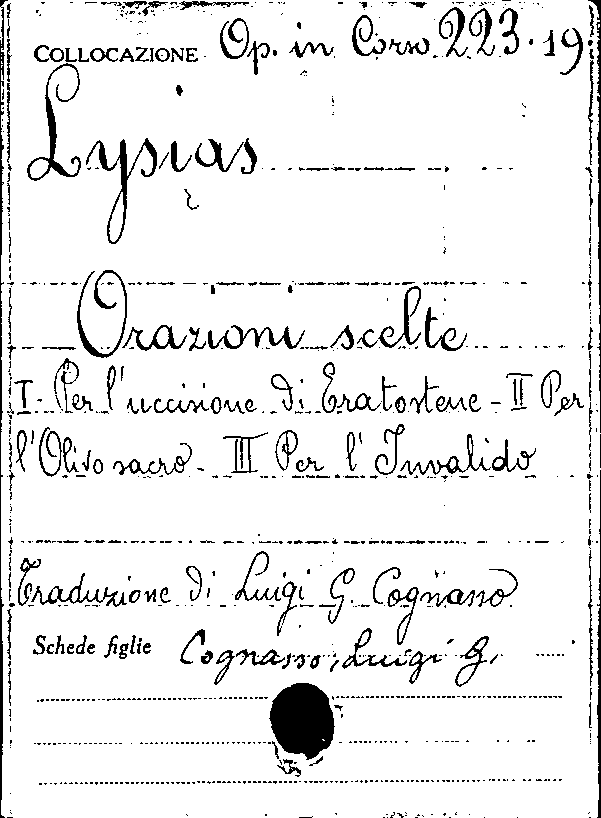 COLLOCAZIONE Op. in Corso 223.19.
Lysias
Orazioni scelte
I- Per l'uccisione di Eratostene - II Per
l'Olivo sacro - III Per l'Invalido
Traduzione di Luigi G. Cognasso
Schede figlie Cognasso, Luigi G.